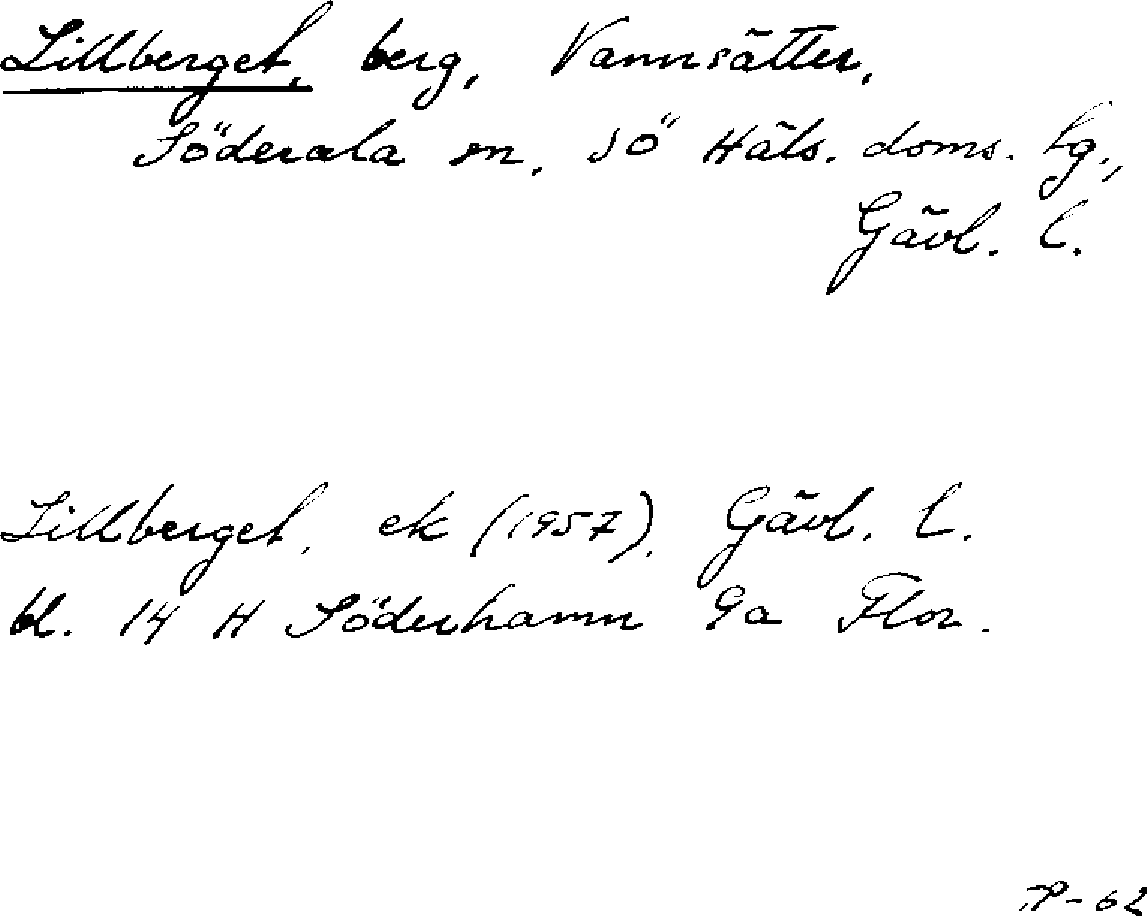 Lillberget, berg, Vannsätter,
Söderala sn. sö Häls. doms. hg.,
Gävl. l.
Lillberget, ek (1957), Gävl. l.
bl. 14 H Söderhamn 9a Flor.
TP-62